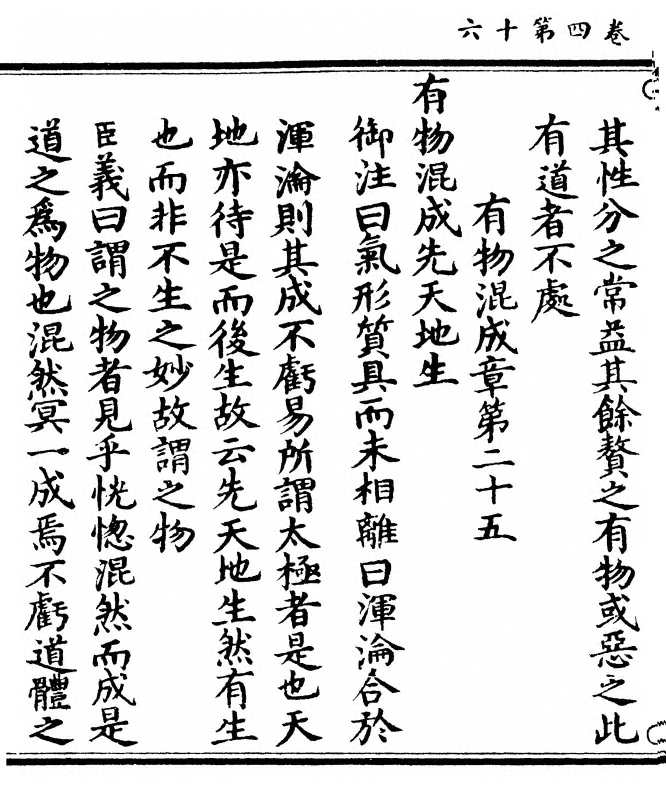 卷四第十六
其性分之常益其餘贅之有物或惡之此
有道者不處
有物混成章第二十五
有物混成先天地生
御注曰氣形質具而未相離曰渾淪合於
渾淪則其成不虧易所謂太極者是也天
地亦待是而後生故云先天地生然有生
也而非不生之妙故謂之物
臣義曰謂之物者見乎恍惚混然而成是
道之爲物也混然冥一成焉不虧道體之